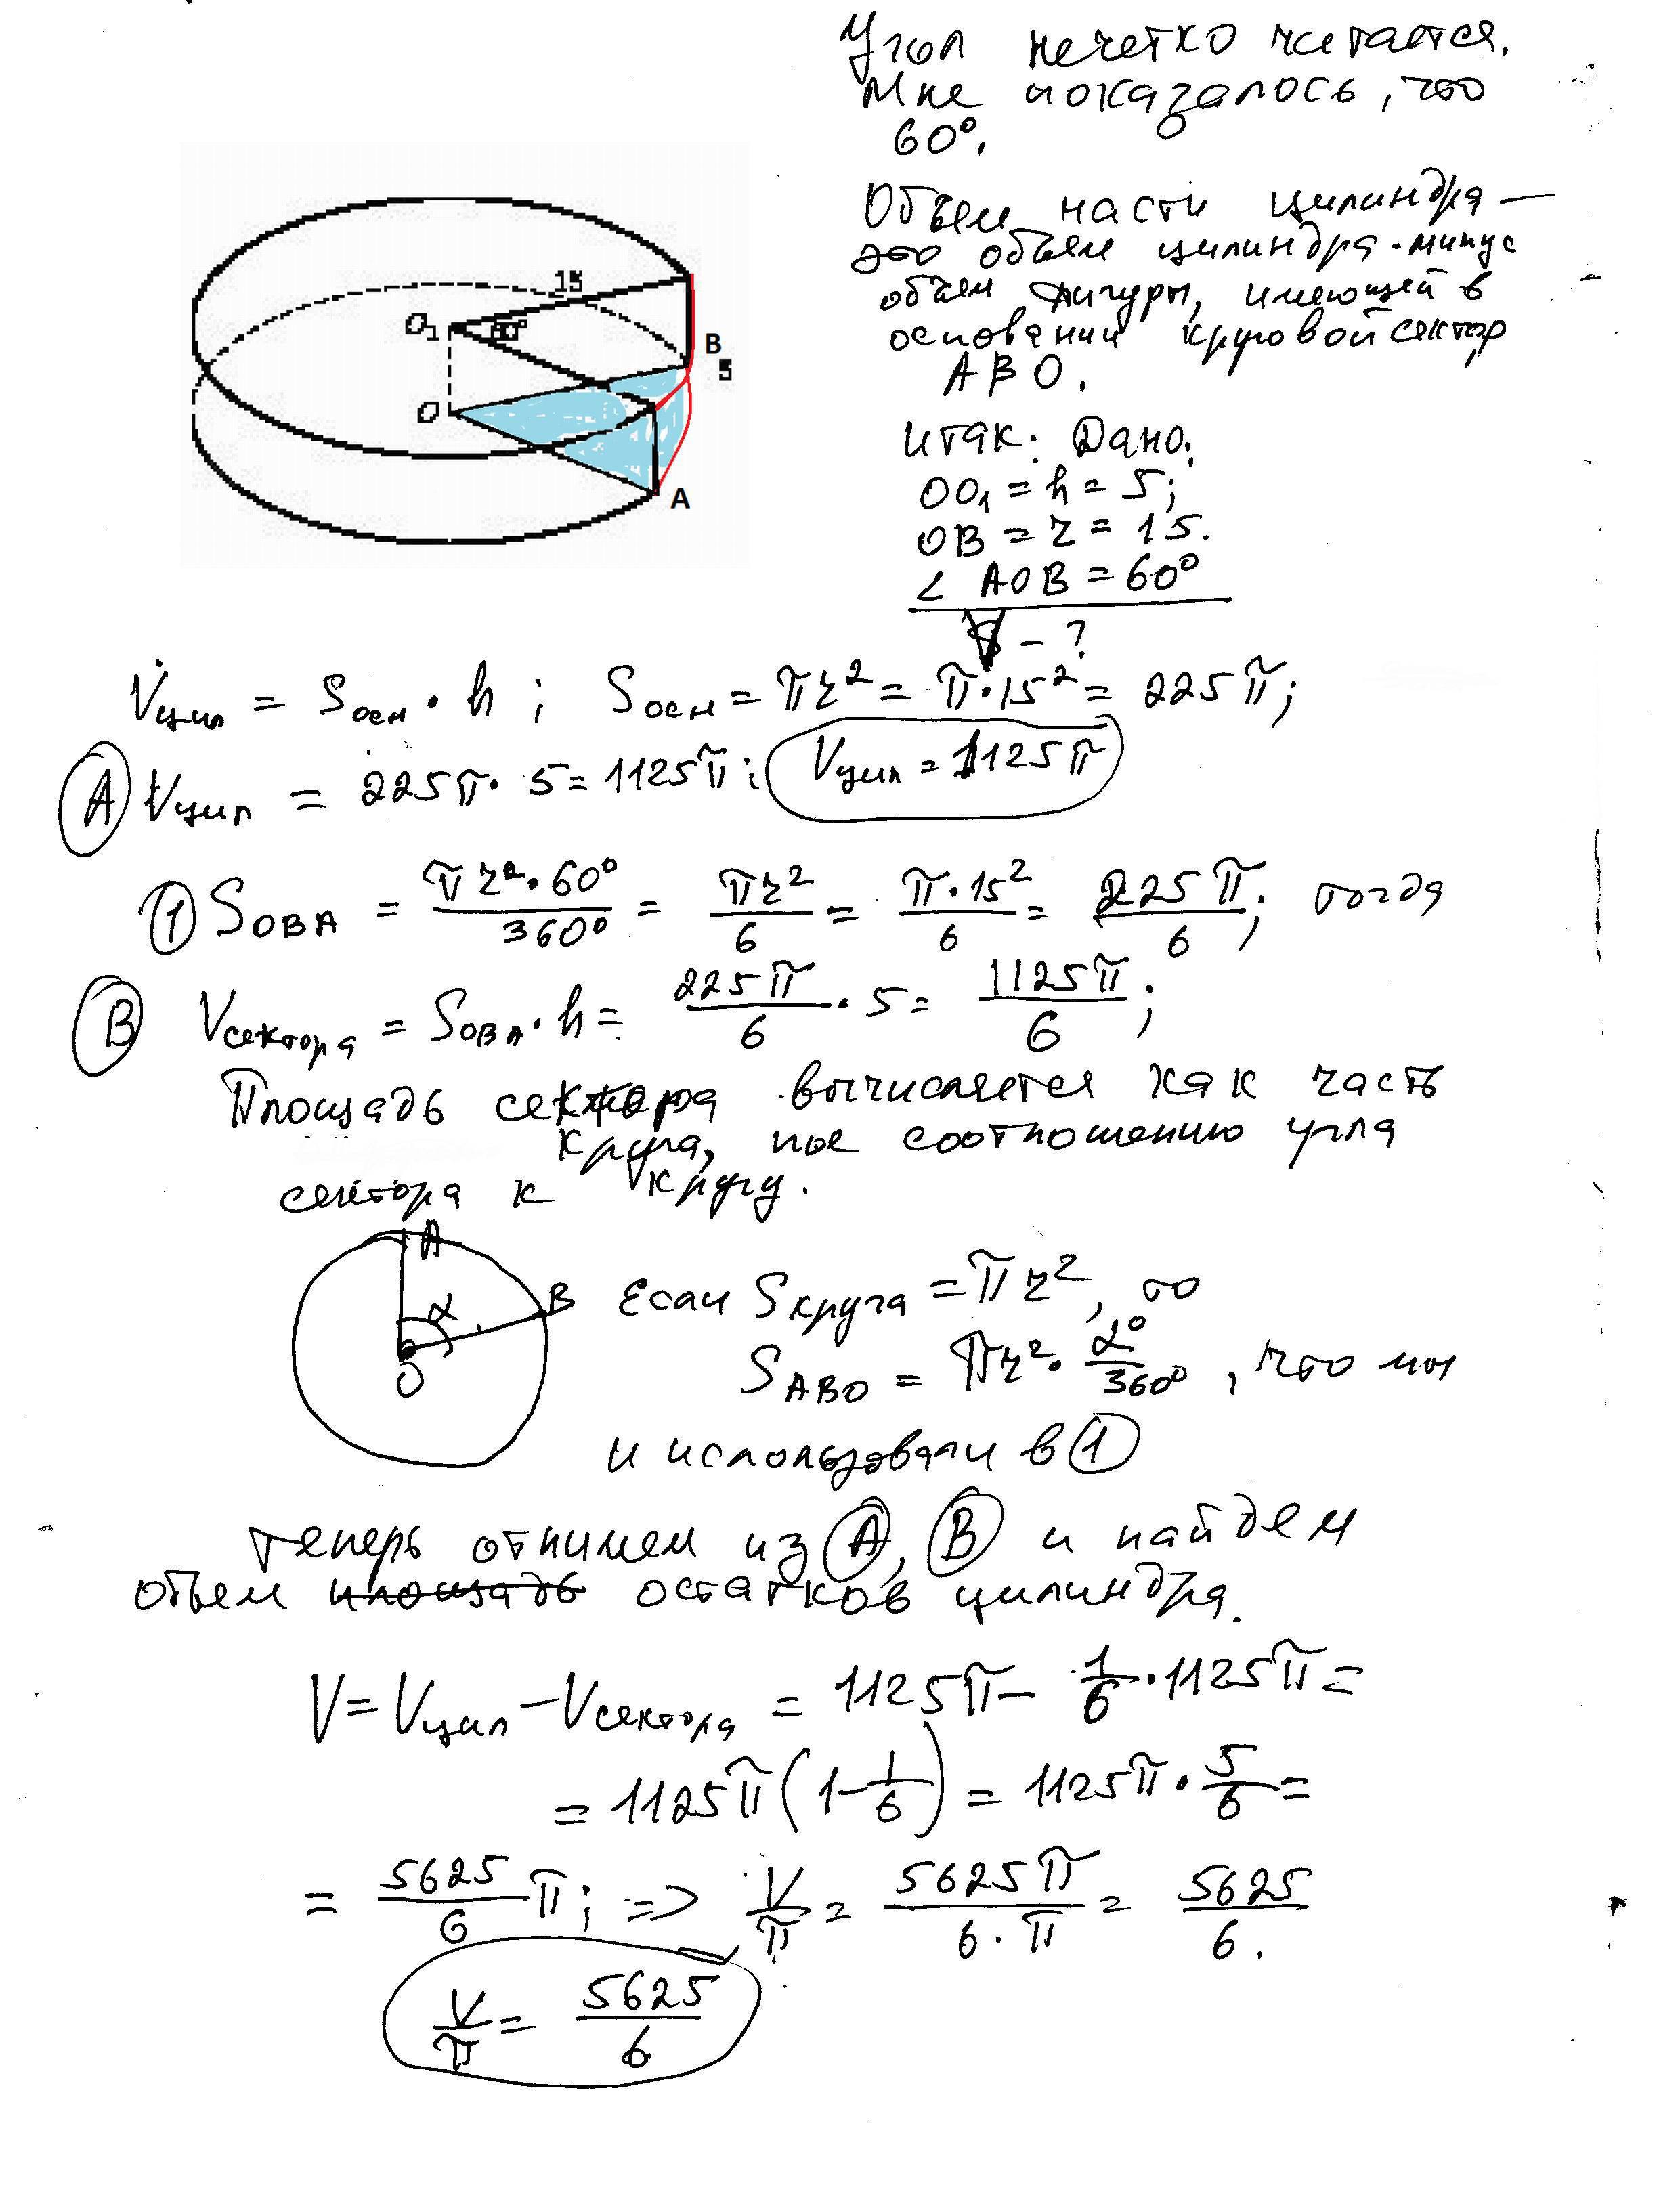 Угол нечетко читается.
Мне показалось, что
60°.
Объем части цилиндра —
это объем цилиндра минус
объем фигуры, имеющей в
основании круговой сектор
ABO.
15
O₁
60°
B
5
O
A
итак: Дано:
OO₁ = h = 5;
OB = r = 15.
∠ AOB = 60°
V - ?
Vцил = Sосн · h ; Sосн = πr² = π·15² = 225π;
(A) Vцил = 225π · 5 = 1125π; Vцил = 1125π
(1) SOBA = πr²·60°/360° = πr²/6 = π·15²/6 = 225π/6; тогда
(B) Vсектора = SOBA · h = 225π/6 · 5 = 1125π/6;
Площадь сектора вычисляется как часть
круга, по соотношению угла
сектора к кругу.
A
α
B
O
Если Sкруга = πr², то
SABO = πr² · α°/360°, что мы
и использовали в (1)
Теперь отнимем из (A), (B) и найдем
объем площадь остатков цилиндра.
V = Vцил – Vсектора = 1125π – 1/6 · 1125π =
= 1125π (1 - 1/6) = 1125π · 5/6 =
= 5625/6 π; => V/π = 5625π/6·π = 5625/6.
V/π = 5625/6